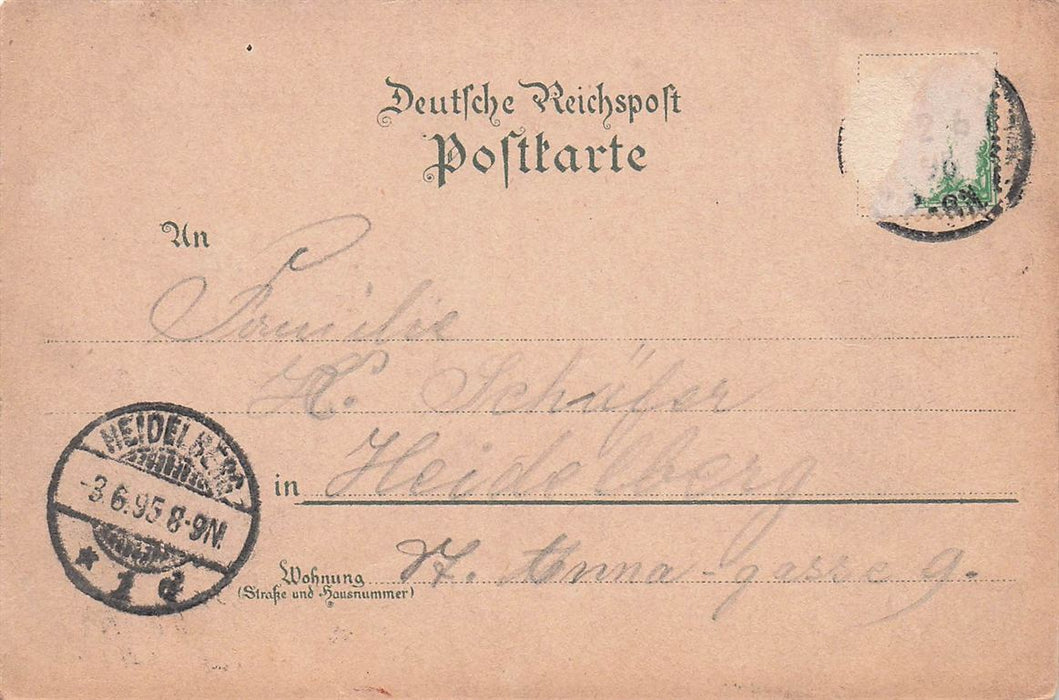 Deutsche Reichspost
Postkarte
2 6
8N
An
Familie
H. Schäfer
HEIDELBERG
-3.6.95 8-9N.
* 1 d
in Heidelberg
Wohnung St. Anna-gasse 9.
(Straße und Hausnummer)